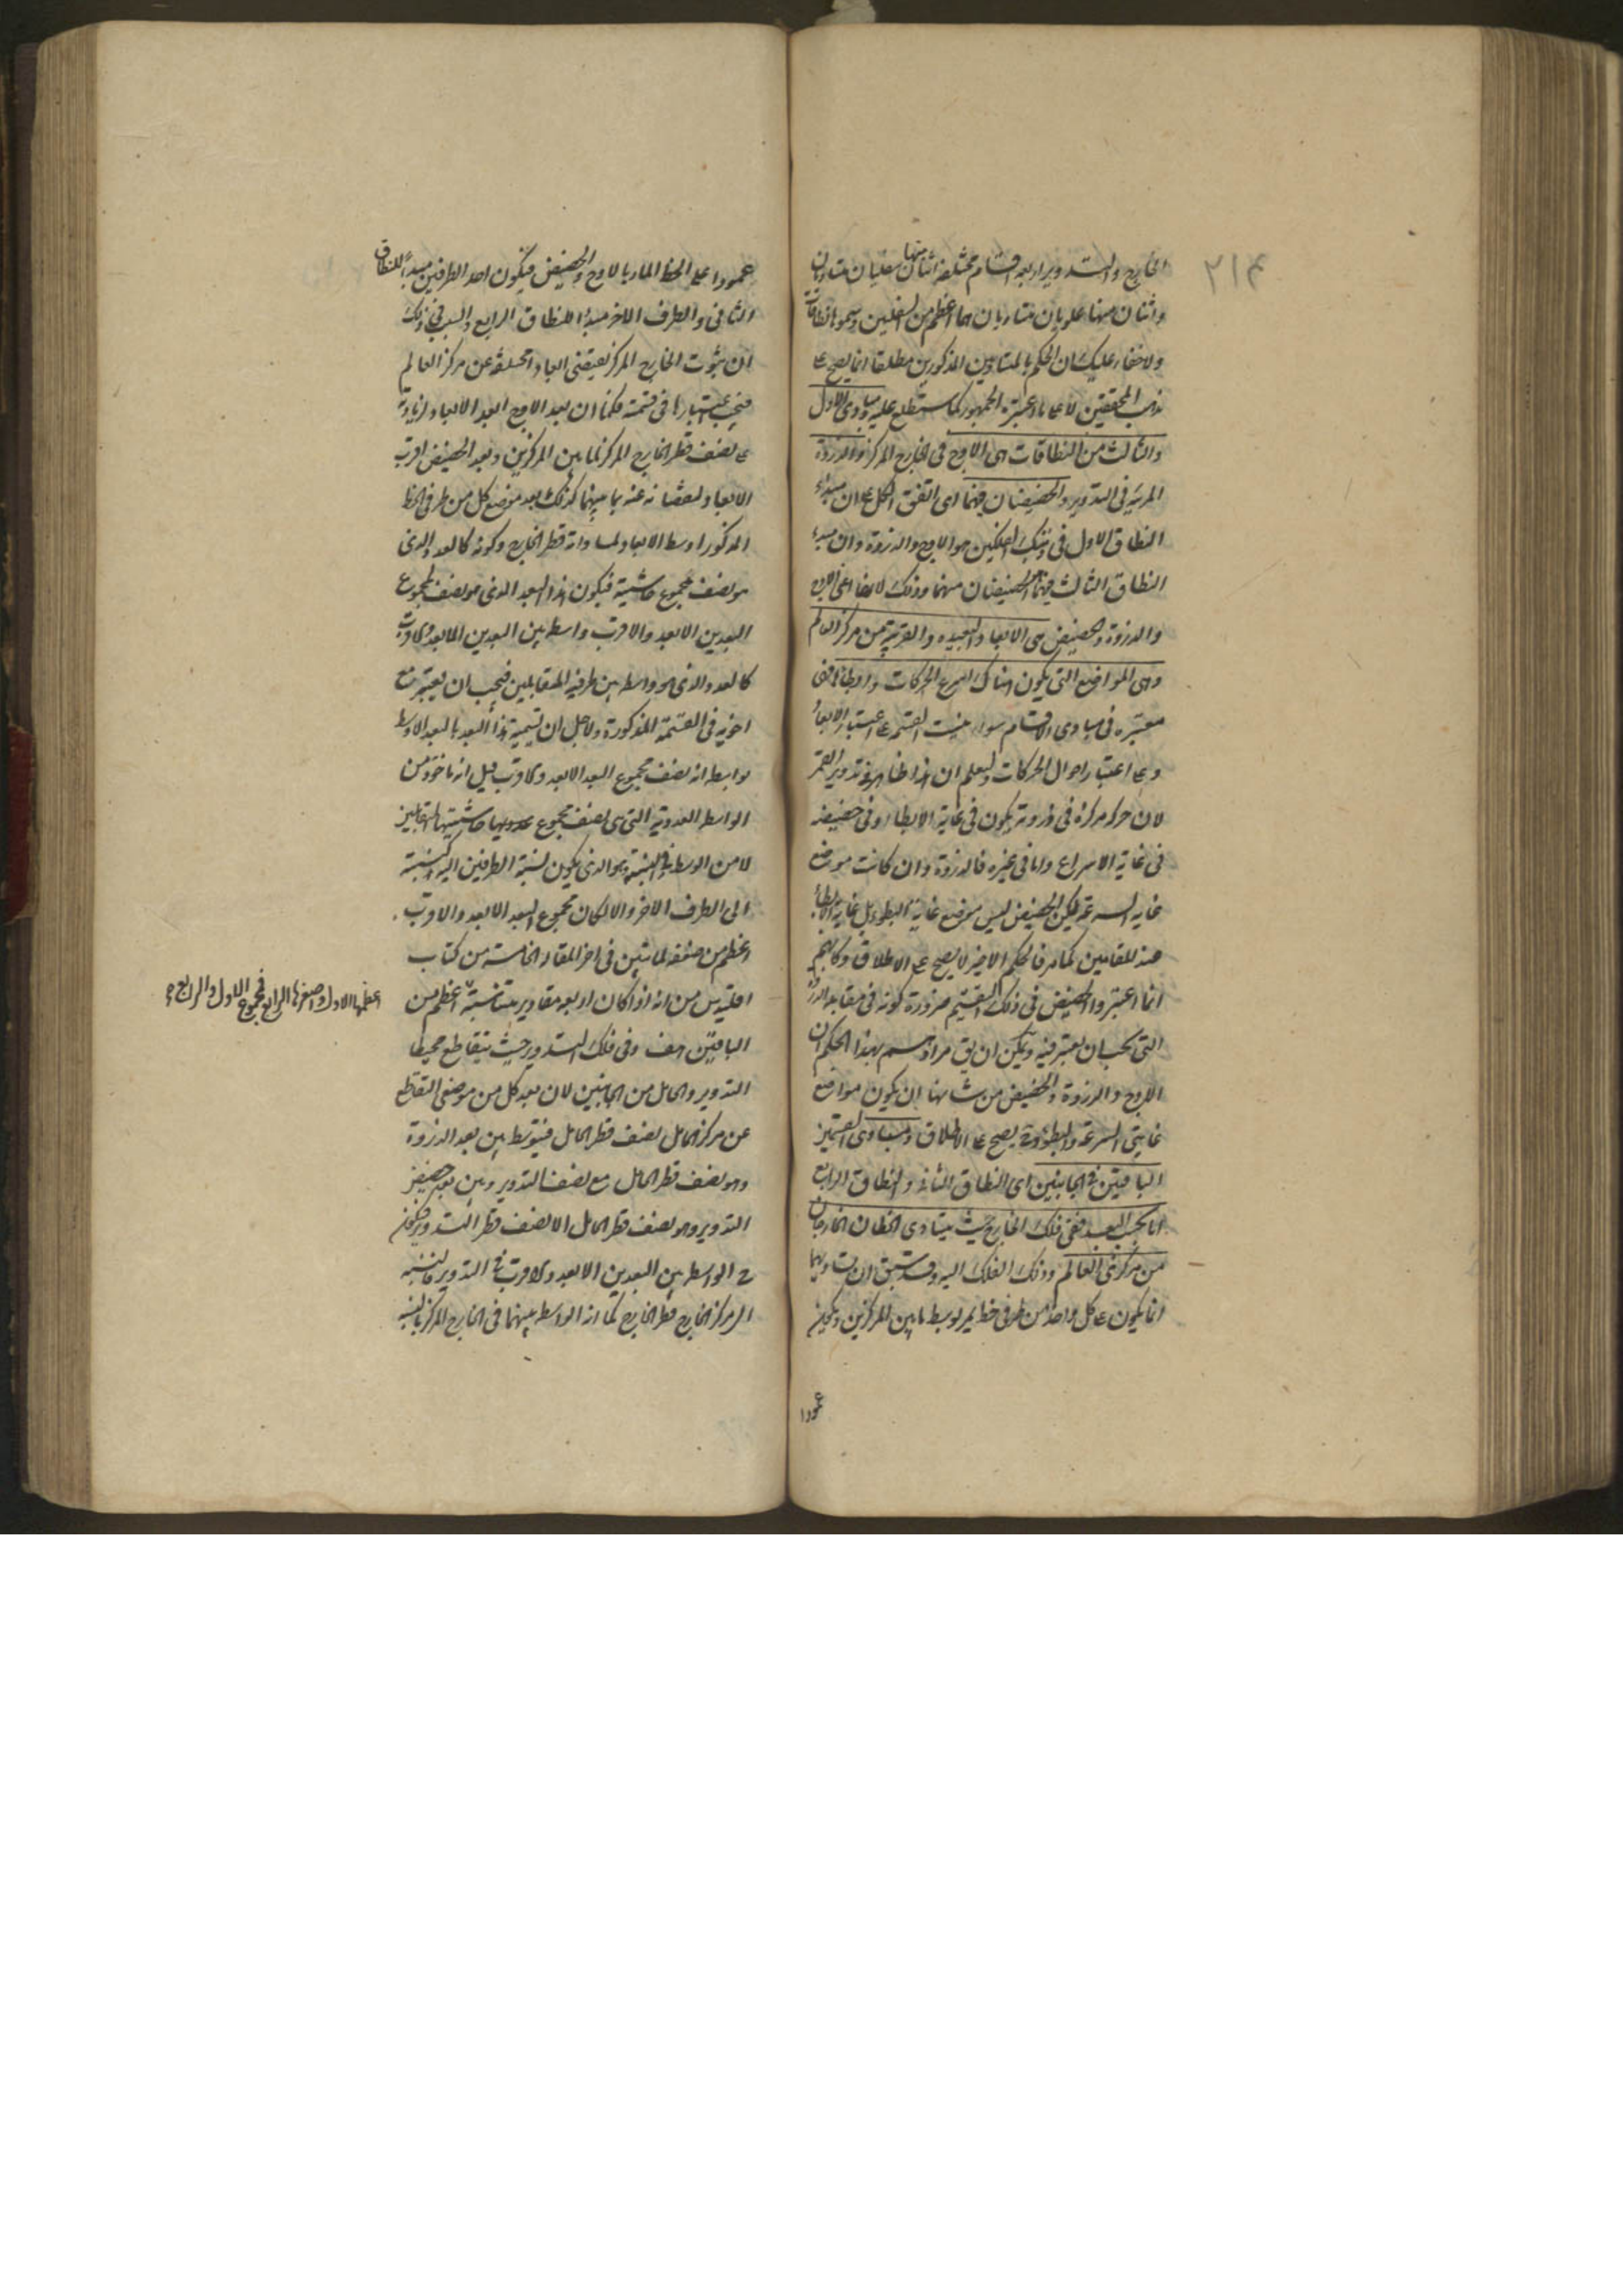 ٢١٤
الخارج والتدوير اربعة اقسام مختلفة اثنان منها سفليان متساويان
واثنان منها علويان متساويان هما اعظم من السفليين وسموها نطاقات
ولا خفاء عليك ان الحكم بالمتساويين المذكورين مطلقا انما يصح على
مذهب المحققين لا على ما اعتبره الجمهور كما ستطلع عليه ومبادى الاول
والثالث من النطاقات هى الاوج فى الخارج المركز والذروة
المرئية فى التدوير والحضيضان فيهما اى اتفق الكل على ان مبدء
النطاق الاول فى ذينك الفلكين هو الاوج والذروة وان مبدء
النطاق الثالث فيهما الحضيضان منهما وذلك لانها اعنى الاوج
والذروة والحضيض هى الابعاد البعيدة والقريبة من مركز العالم
وهى المواضع التى يكون هناك اسرع الحركات وابطأها فهى
معتبرة فى مبادى الاقسام سواء بنيت القسمة على اعتبار الابعاد
وعلى اعتبار احوال الحركات وليعلم ان هذا ظاهر فى تدوير القمر
لان حركة مركزه فى ذروته يكون فى غاية الابطاء وفى حضيضه
فى غاية الاسراع واما فى غيره فالذروة وان كانت موضع
غاية السرعة لكن الحضيض ليس موضع غاية البطوء بل غاية الابطاء
عند المقامين كما مر فالحكم الاخير لا يصح على الاطلاق وكانهم
انما اعتبروا الحضيض فى ذلك التقسيم ضرورة كونه فى مقابلة الذروة
التى يجب ان يعتبر فيه ويمكن ان يق مرادهم بهذا الحكم ان
الاوج والذروة والحضيض من شانها ان يكون مواضع
غايتى السرعة والبطوء وح يصح على الاطلاق ومبادى القسمين
الباقيين فى الجانبين اى النطاق الثانى والنطاق الرابع
اما بحسب البعد ففى فلك الخارج حيث يتساوى الخطان الخارجان
من مركزى العالم وذلك الفلك اليه وقد سبق ان تساويهما
انما يكون على كل واحد من طرفى خط يمر بوسط ما بين المركزين ويكون
عمودا
عمودا على الخط المار بالاوج والحضيض فيكون احد الطرفين مبدأ للنطاق
الثانى والطرف الاخر مبدء للنطاق الرابع والسبب فى ذلك
ان ثبوت الخارج المركز يقتضى ابعادا مختلفة عن مركز العالم
فيجب اعتبارها فى قسمته فكما ان بعد الاوج ابعد الابعاد لزيادته
على نصف قطر الخارج المركز بما بين المركزين وبعد الحضيض اقرب
الابعاد لنقصانه عنه بما بينهما كذلك بعد موضع كل من طرفى الخط
المذكور اوسط الابعاد لمساواته قطر الخارج وكونه كالعدد الذى
هو نصف مجموع حاشيته فيكون هذا البعد الذى هو نصف مجموع
البعدين الابعد والاقرب واسطة بين البعدين الابعد والاقرب
كالعدد الذى هو واسطة بين طرفيه المتقابلين فيجب ان يعتبر مع
اخويه فى القسمة المذكورة ولاجل ان تسمية هذا البعد بالبعد الاوسط
بواسطة انه نصف مجموع البعد الابعد والاقرب قيل انه ماخوذ من
الواسطة العددية التى هى نصف مجموع عدديها حاشيتيها المتقابلتين
لا من الوسط فى النسبة وهو الذى يكون نسبة الطرفين اليه كنسبته
الى الطرف الاخر والا لكان مجموع البعد الابعد والاقرب
اعظم من ضعفه لما تبين فى اخر المقالة الخامسة من كتاب
اقليدس من انه اذا كان اربعة مقادير متناسبة اعظم من
الباقيين هف وفى فلك التدوير حيث يتقاطع محيطا
التدوير والحامل من الجانبين لان بعد كل من موضعى التقاطع
عن مركز الحامل نصف قطر الحامل فيتوسط بين بعد الذروة
وهو نصف قطر الحامل مع نصف التدوير وبين بعد حضيض
التدوير وهو نصف قطر الحامل الا نصف قطر التدوير فيكون
ح الواسطة بين البعدين الابعد والاقرب فى التدوير بالنسبة
الى مركز الخارج قطر الخارج كما ان الواسطة بينهما فى الخارج المركز بالنسبة
اعظمها الاول واصغرها الرابع فمجموع الاول والرابع